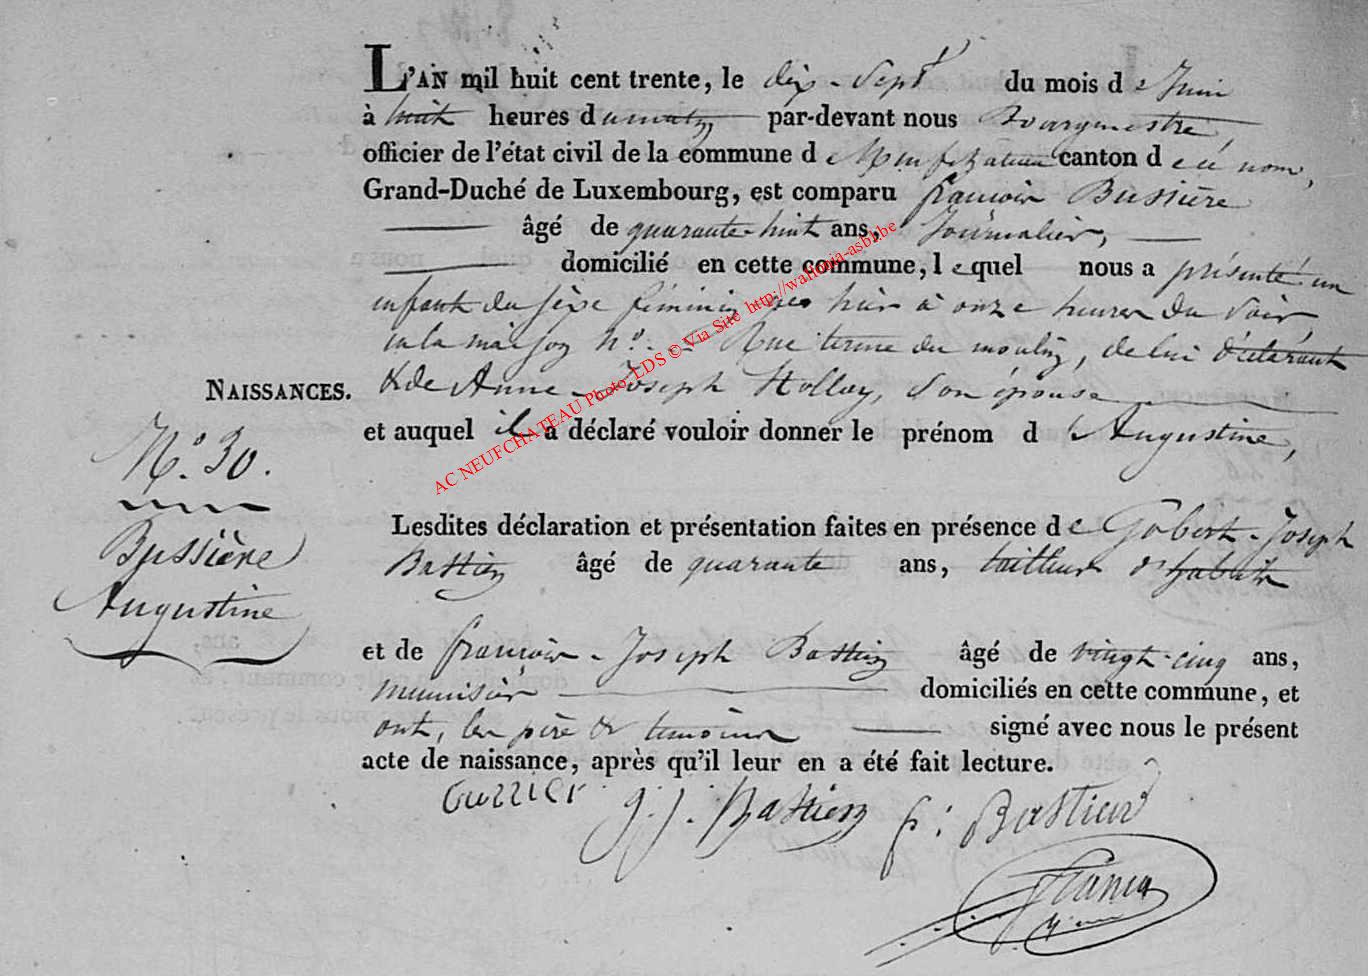 L'AN mil huit cent trente, le dix-sept du mois de Juin
à huit heures du matin par-devant nous Bourgmestre,
officier de l'état civil de la commune de Neufchateau canton de ce nom,
Grand-Duché de Luxembourg, est comparu françois Bussière
âgé de quarante-huit ans, Journalier,
domicilié en cette commune, lequel nous a présenté un
enfant du sèxe féminin, né hier à onze heures du soir,
en la maison N°. Rue terme du moulin, de lui déclarant
& de Anne-Joseph Hollay, son épouse
NAISSANCES.
et auquel il a déclaré vouloir donner le prénom d' Augustine,
N.° 30.
Bussière
Augustine
Lesdites déclaration et présentation faites en présence de Gobert-Joseph
Bastien âgé de quarante ans, tailleur d'habits
et de françois-Joseph Bastien âgé de vingt-cinq ans,
menuisier domiciliés en cette commune, et
ont, les père & témoins signé avec nous le présent
acte de naissance, après qu'il leur en a été fait lecture.
g. j. Bastien f: Bastien
AC NEUFCHATEAU Photo: LDS © Via Site http://wallonia-asbl.be